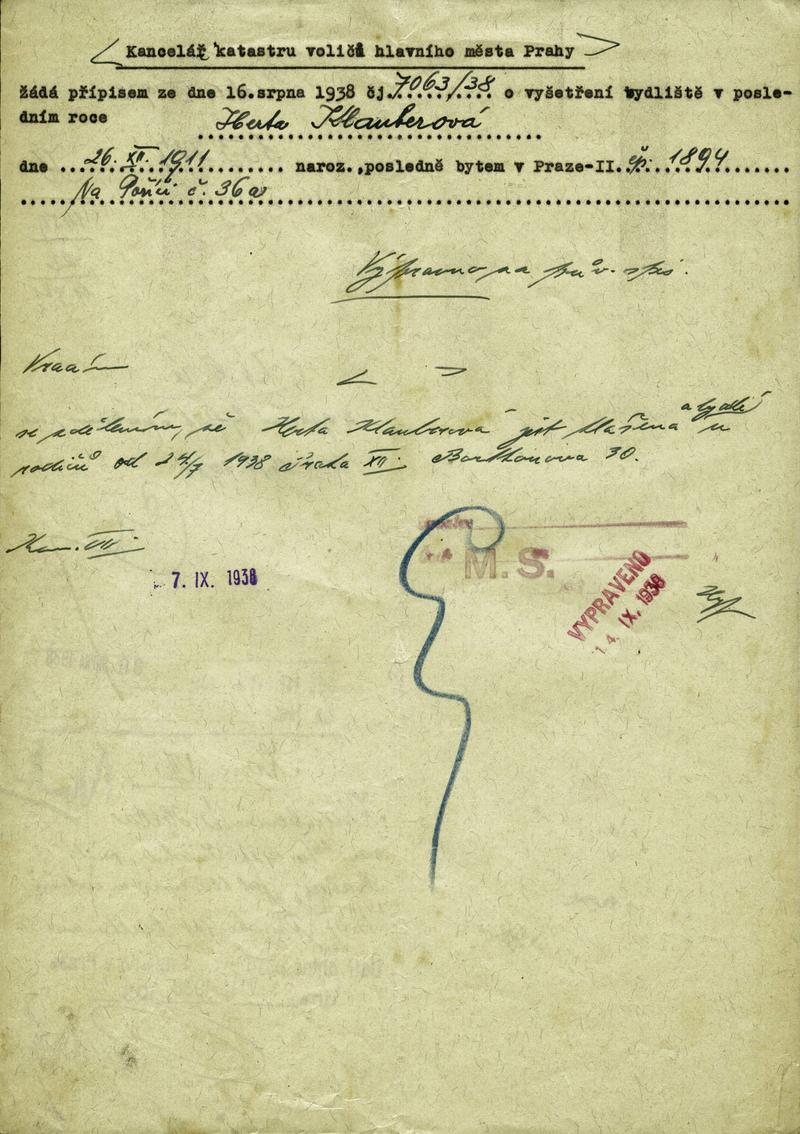 Kancelář katastru voličů hlavního města Prahy
žádá přípisem ze dne 16.srpna 1938 čj.7063/38 o vyšetření bydliště v posle-
dním roce Herta Klauberová
dne 26. XII. 1911 naroz.,posledně bytem v Praze-II. čp. 1894
Na Poříčí č. 36a
Výpravno na pův. spis.
Vrací
se sdělením, že Herta Klauberová jest hlášena a bydlí u
rodičů od 24/7 1938 Praha XII. 30.
Kom. VII.
7. IX. 1938
M. S.
VYPRAVENO
14. IX. 1938